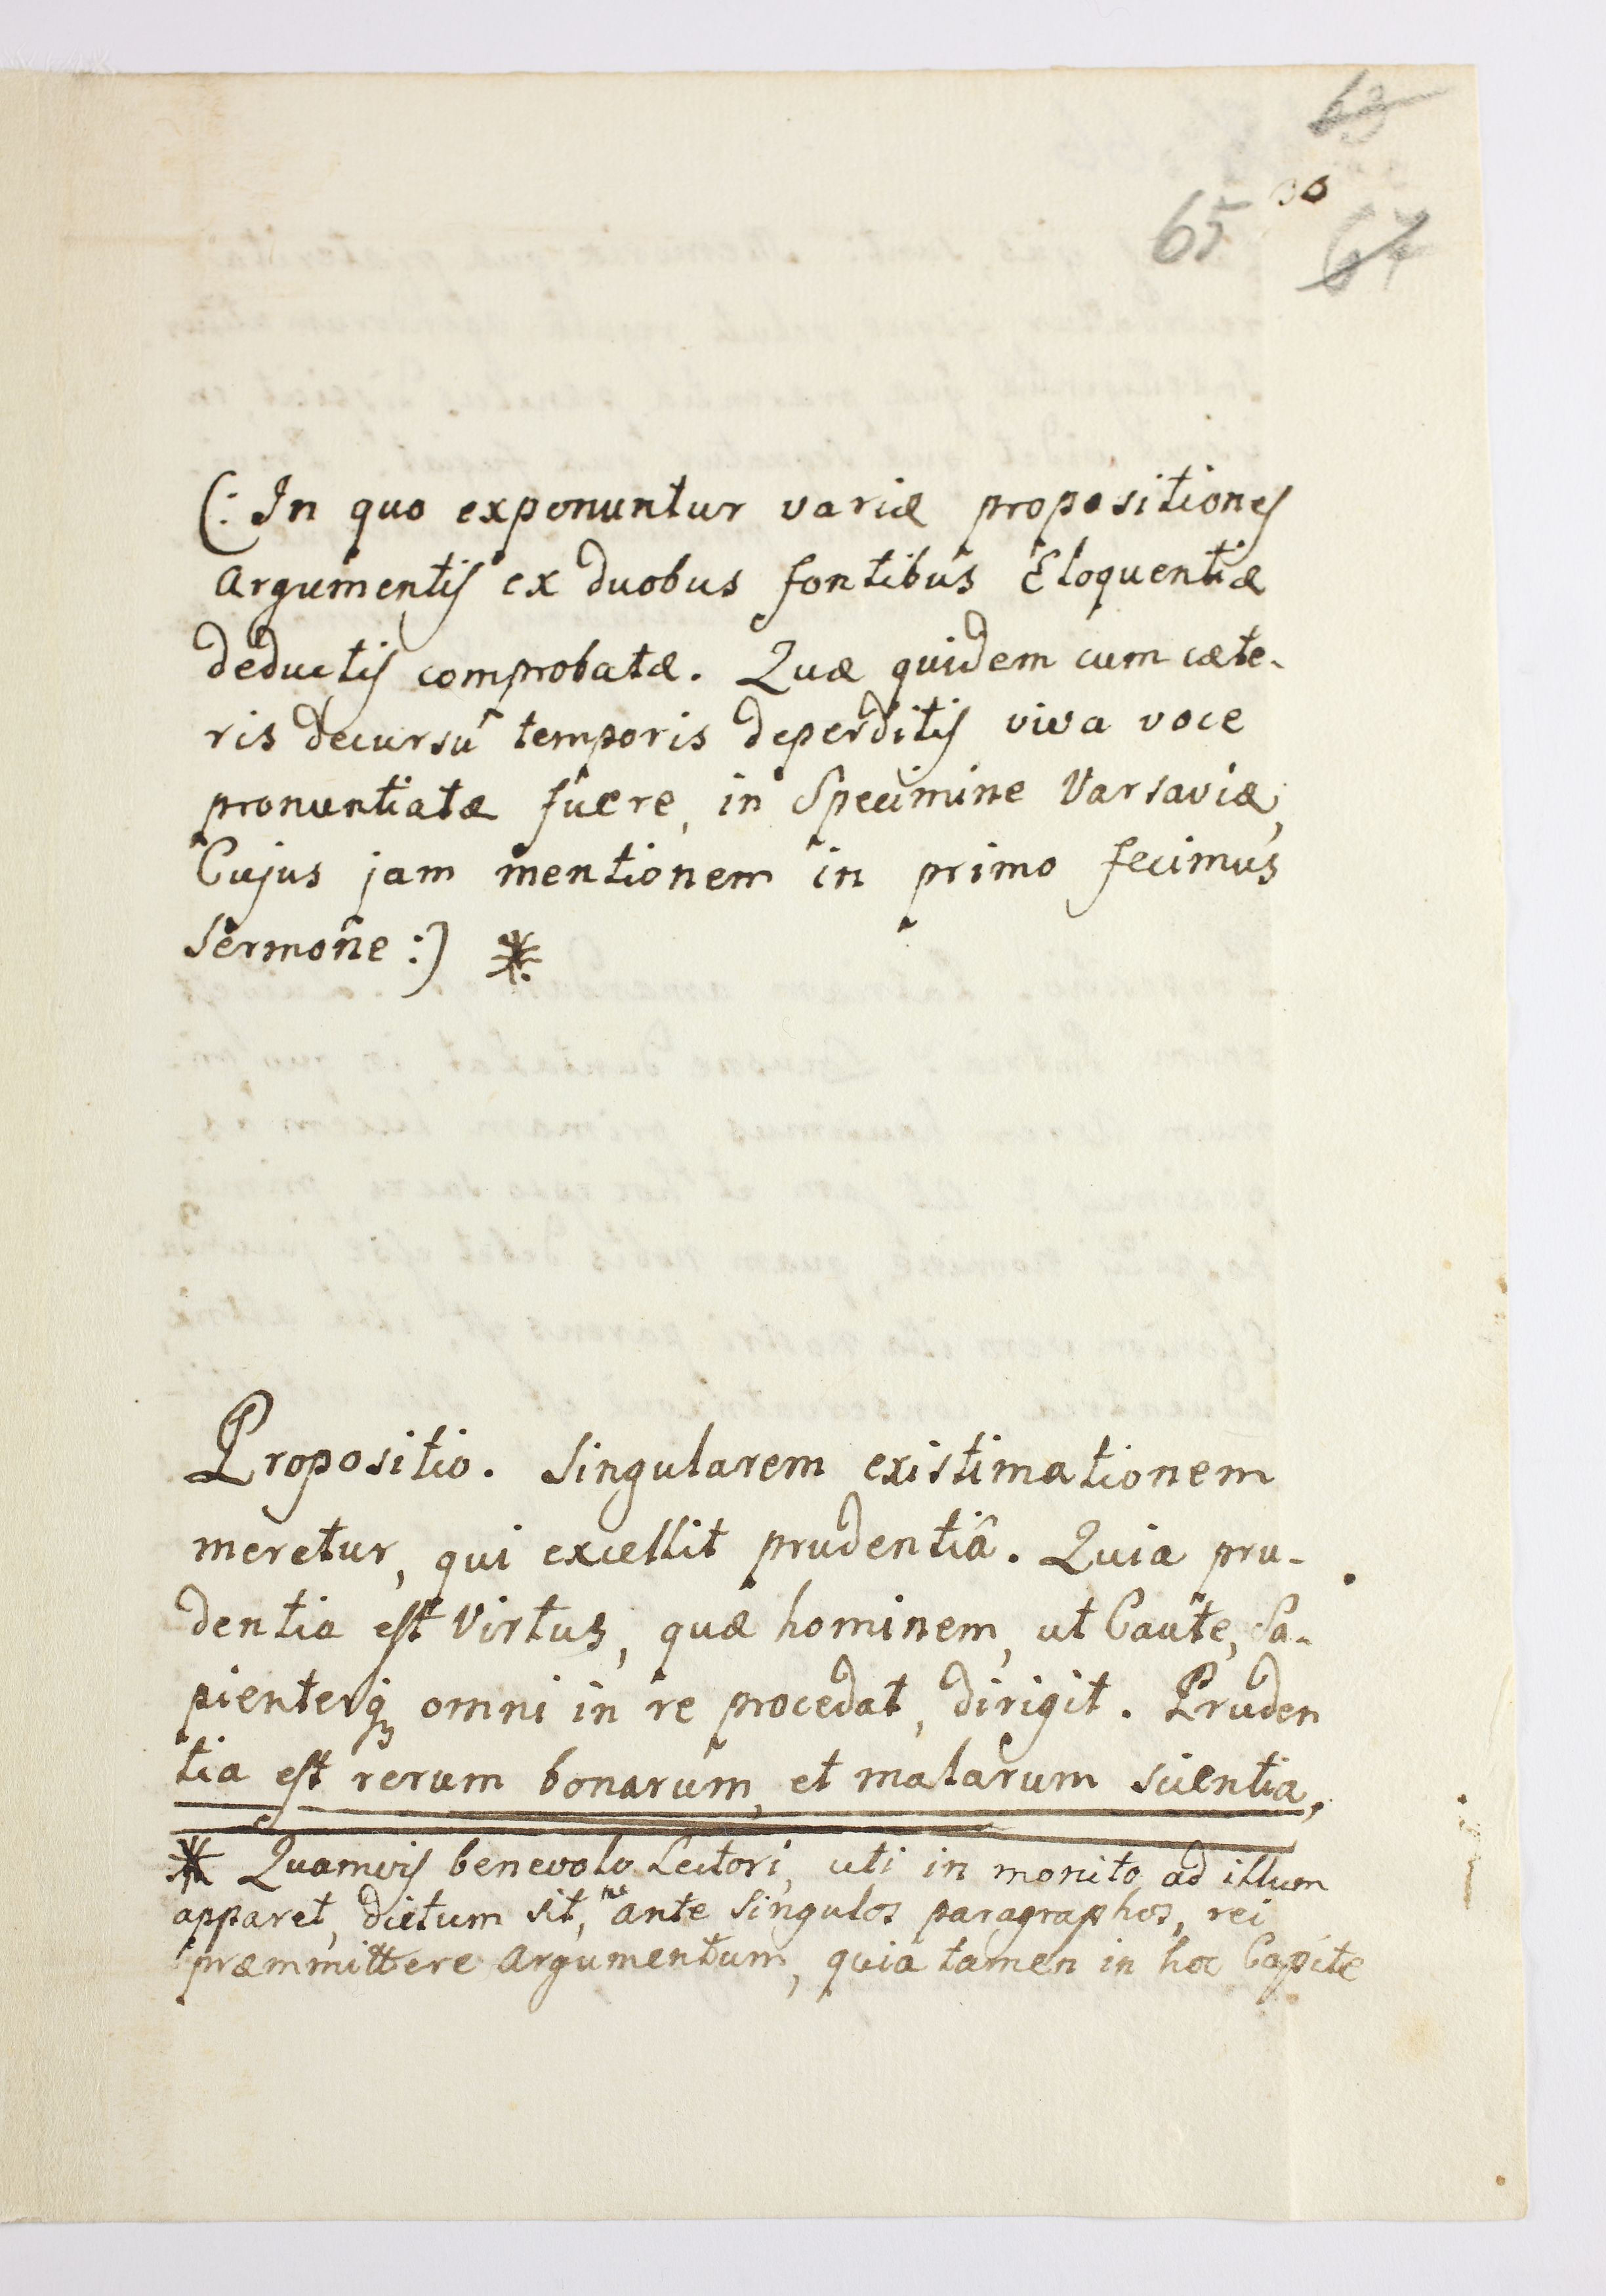 63
36
65 67
(: In quo exponuntur variæ propositiones
Argumentis ex duobus fontibus Eloquentiæ
deductis comprobatæ. Quæ quidem cum cæte-
ris decursû temporis deperditis viva voce
pronuntiatæ fuere, in Specimine Varsaviæ,
Cujus jam mentionem in primo fecimus
Sermone :) *
Propositio. Singularem existimationem
meretur, qui excellit prudentiâ. Quia pru-
dentia est Virtus, quæ hominem, ut Caute, Sa-
pienterq; omni in re procedat, dirigit. Pruden
tia est rerum bonarum, et malarum scientia,
* Quamvis benevolo Lectori, uti in monito ad illum
apparet, dictum sit, ante singulos paragraphos, rei
præmmittere Argumentum, quia tamen in hoc Capite